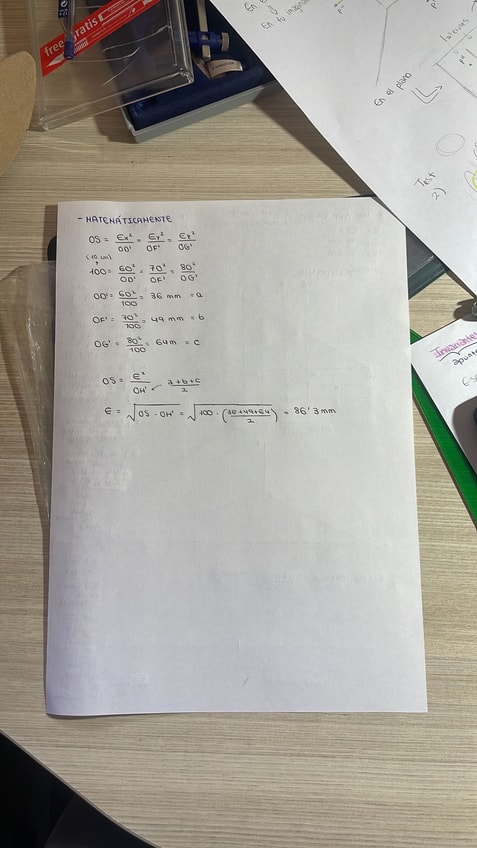 free gratis
En es
En tu imagina
En es plano
Test
2)
Invariantes
apunte
- MATEMÁTICAMENTE
OS = Ex²/OD' = Ey²/OF' = Ez²/OG'
(10 cm)
100 = 60²/OD' = 70²/OF' = 80²/OG'
OD' = 60²/100 = 36 mm = a
OF' = 70²/100 = 49 mm = b
OG' = 80²/100 = 64m = c
OS = E²/OH' a+b+c/2
E = √OS · OH' = √100 · (36+49+64/2) = 86'3 mm